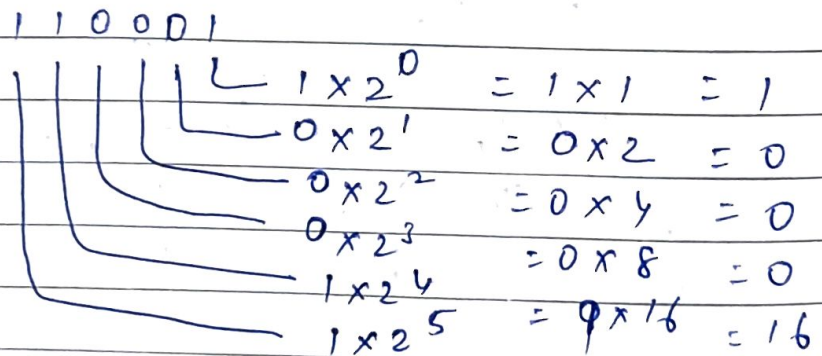 1 1 0 0 0 1
1 × 2⁰ = 1 × 1 = 1
0 × 2¹ = 0 × 2 = 0
0 × 2² = 0 × 4 = 0
0 × 2³ = 0 × 8 = 0
1 × 2⁴ = 1 × 16 = 16
1 × 2⁵